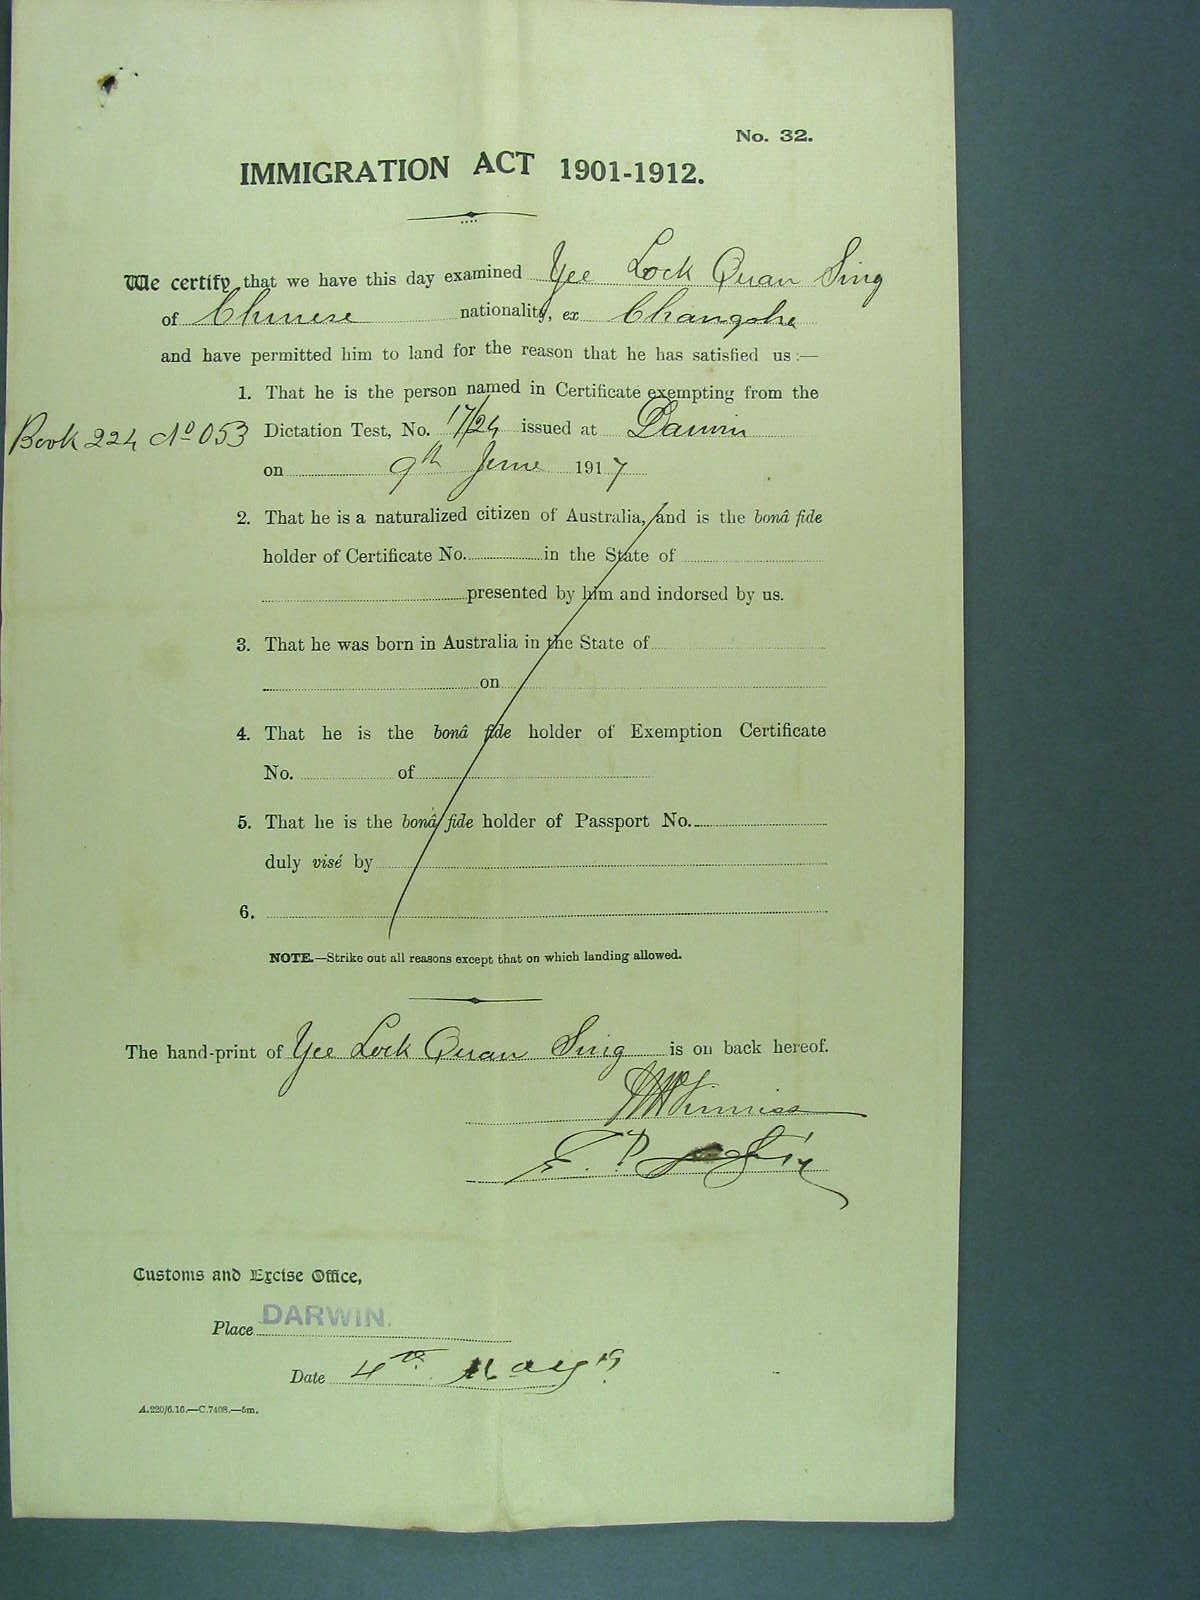 No. 32.
IMMIGRATION ACT 1901-1912.
We certify that we have this day examined Yee Lock Quan Sing
of Chinese nationality, ex Changsha
and have permitted him to land for the reason that he has satisfied us :—
1. That he is the person named in Certificate exempting from the
Book 224 No 053 Dictation Test, No. 17/24 issued at Darwin
on 9th June 1917
2. That he is a naturalized citizen of Australia, and is the bonâ fide
holder of Certificate No. in the State of
presented by him and indorsed by us.
3. That he was born in Australia in the State of
on
4. That he is the bonâ fide holder of Exemption Certificate
No. of
5. That he is the bonâ fide holder of Passport No.
duly visé by
6.
NOTE.—Strike out all reasons except that on which landing allowed.
The hand-print of Yee Lock Quan Sing is on back hereof.
Customs and Excise Office,
Place DARWIN.
Date 4th May 19
A.220/6.16.—C.7408.—5m.